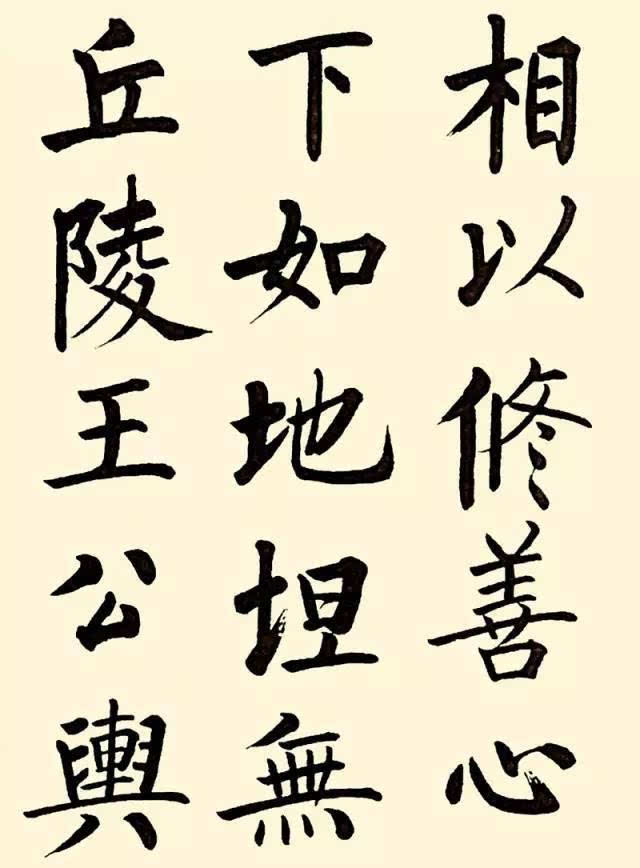 相以修善心
下如地坦無
丘陵王公輿